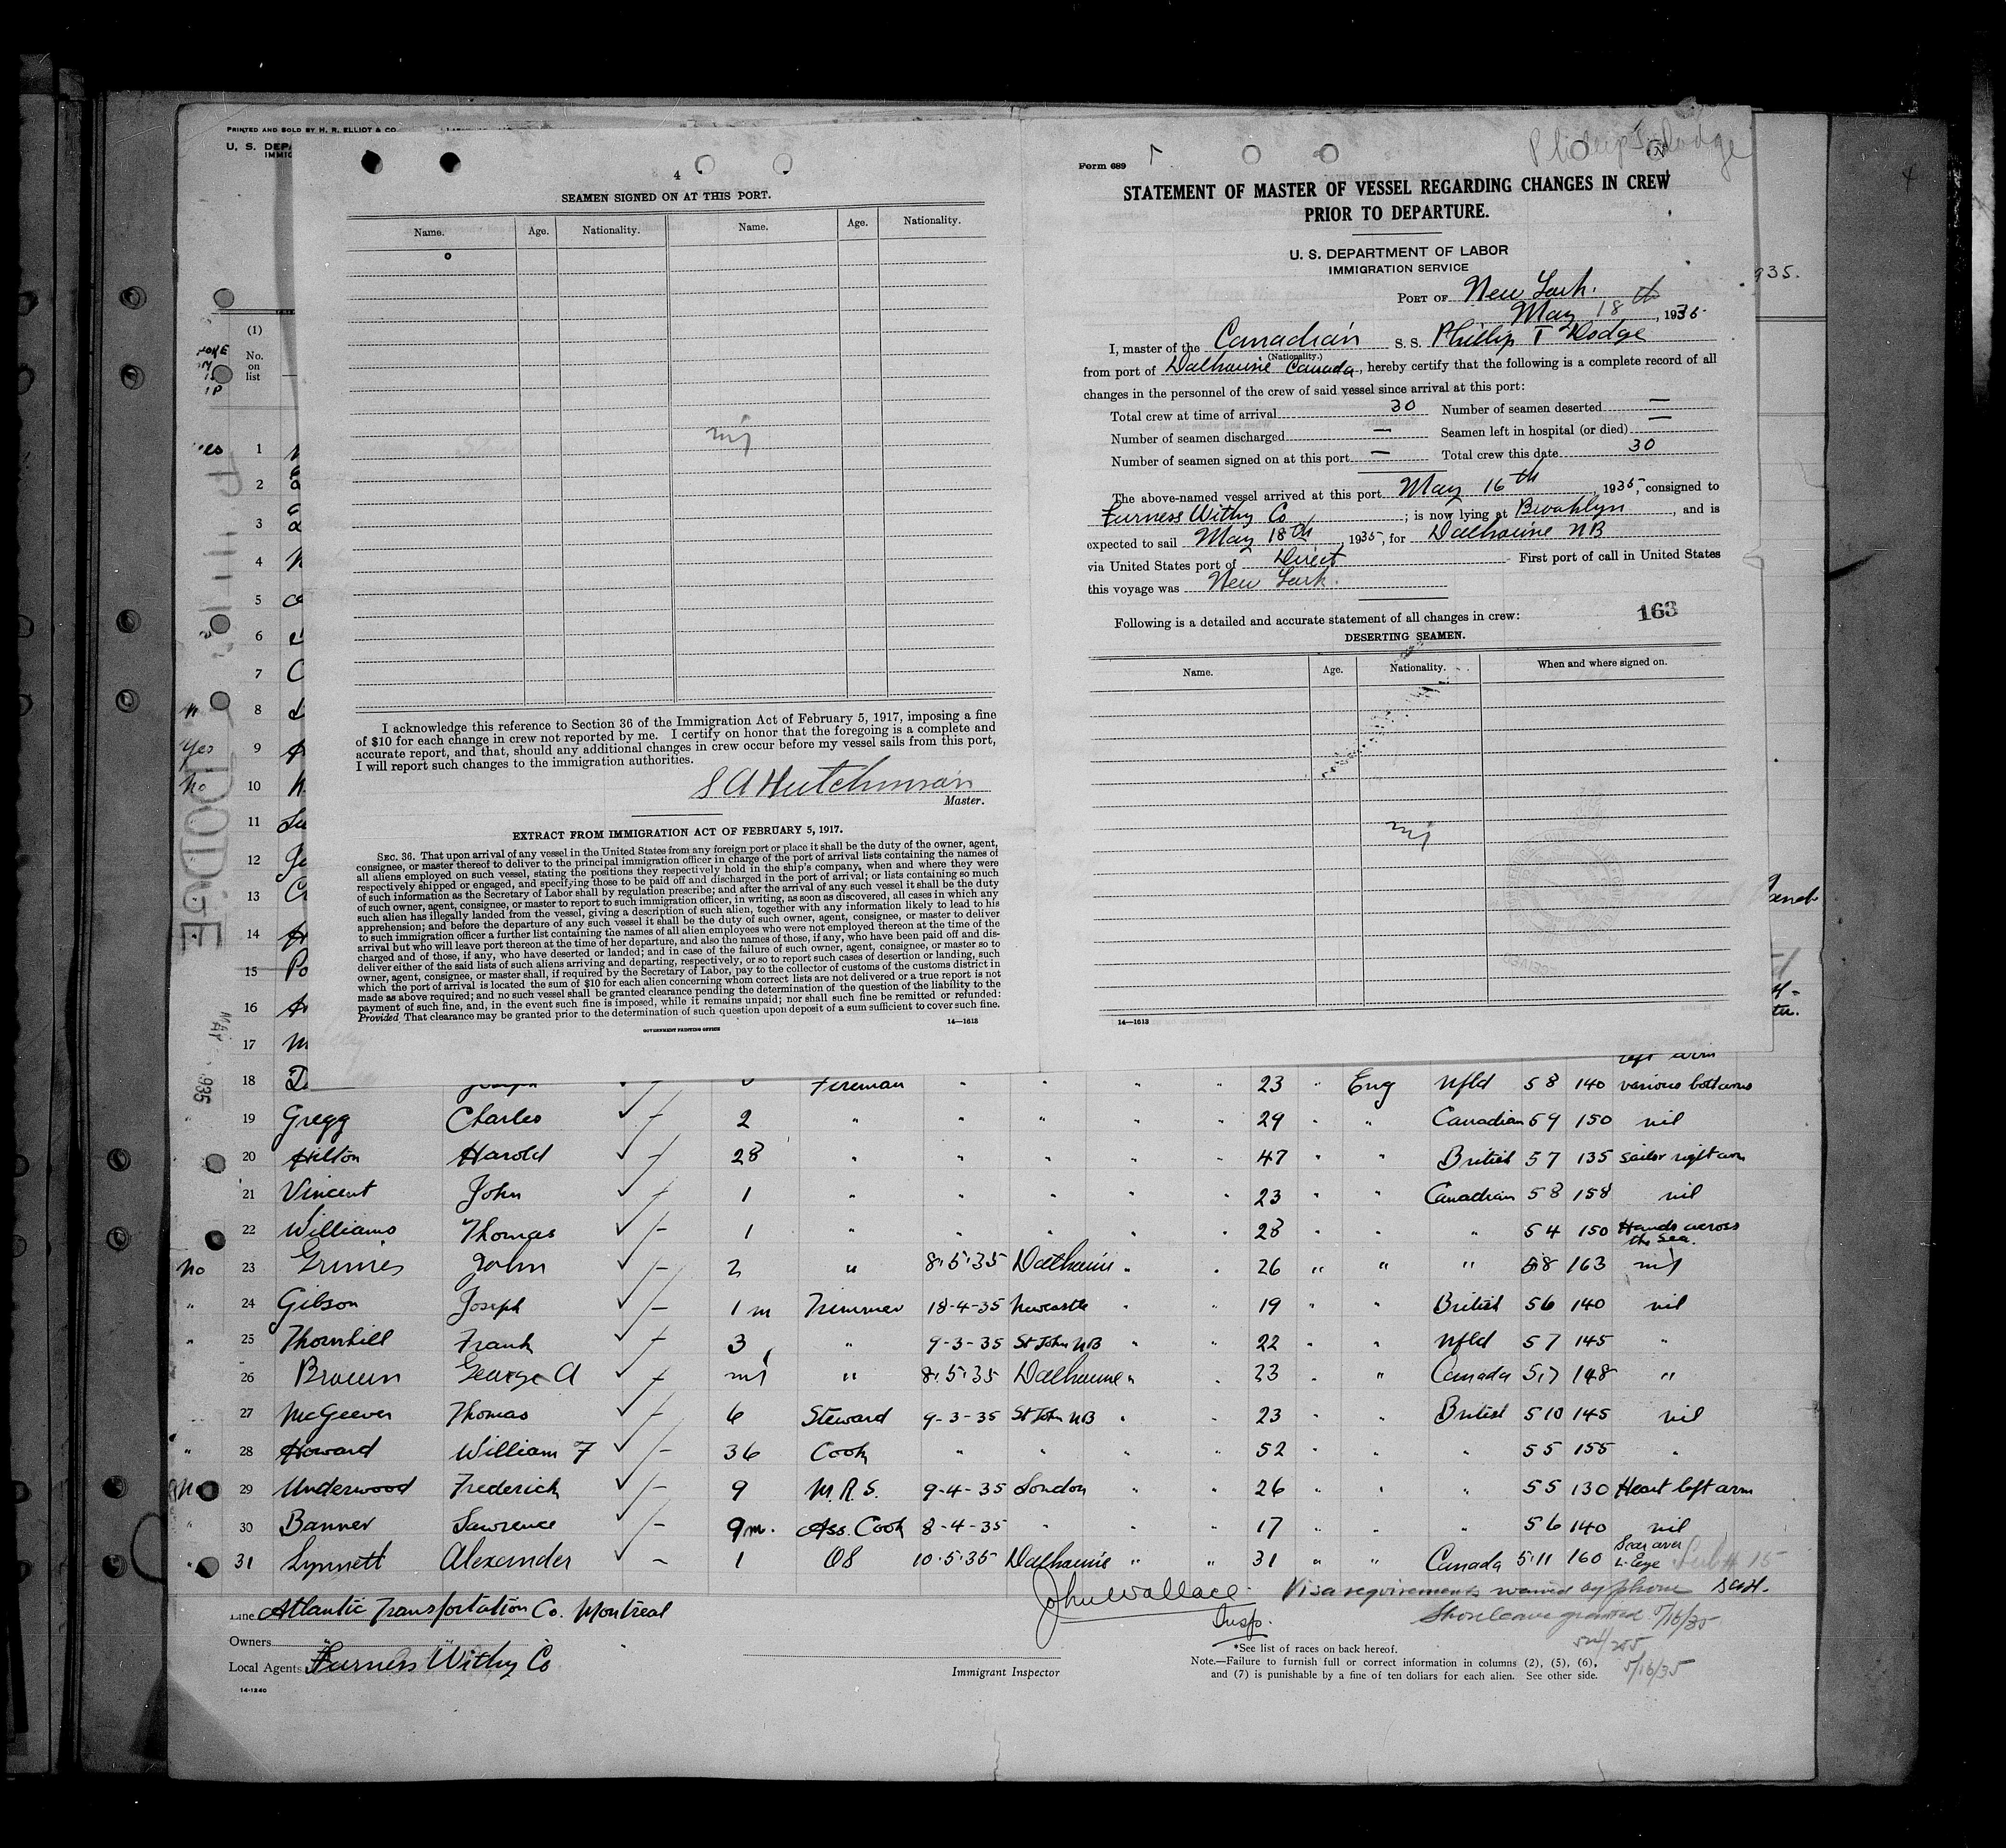 PRINTED AND SOLD BY H. R. ELLIOT & CO
U. S. DEPA
IMMIG
4
SEAMEN SIGNED ON AT THIS PORT.
Name. Age. Nationality. Name. Age. Nationality.
nil
I acknowledge this reference to Section 36 of the Immigration Act of February 5, 1917, imposing a fine
of $10 for each change in crew not reported by me. I certify on honor that the foregoing is a complete and
accurate report, and that, should any additional changes in crew occur before my vessel sails from this port,
I will report such changes to the immigration authorities.
S A Hutchinson
Master.
EXTRACT FROM IMMIGRATION ACT OF FEBRUARY 5, 1917.
SEC. 36. That upon arrival of any vessel in the United States from any foreign port or place it shall be the duty of the owner, agent,
consignee, or master thereof to deliver to the principal immigration officer in charge of the port of arrival lists containing the names of
all aliens employed on such vessel, stating the positions they respectively hold in the ship's company, when and where they were
respectively shipped or engaged, and specifying those to be paid off and discharged in the port of arrival; or lists containing so much
of such information as the Secretary of Labor shall by regulation prescribe; and after the arrival of any such vessel it shall be the duty
of such owner, agent, consignee, or master to report to such immigration officer, in writing, as soon as discovered, all cases in which any
such alien has illegally landed from the vessel, giving a description of such alien, together with any information likely to lead to his
apprehension; and before the departure of any such vessel it shall be the duty of such owner, agent, consignee, or master to deliver
to such immigration officer a further list containing the names of all alien employees who were not employed thereon at the time of the
arrival but who will leave port thereon at the time of her departure, and also the names of those, if any, who have been paid off and dis-
charged and of those, if any, who have deserted or landed; and in case of the failure of such owner, agent, consignee, or master so to
deliver either of the said lists of such aliens arriving and departing, respectively, or so to report such cases of desertion or landing, such
owner, agent, consignee, or master shall, if required by the Secretary of Labor, pay to the collector of customs of the customs district in
which the port of arrival is located the sum of $10 for each alien concerning whom correct lists are not delivered or a true report is not
made as above required; and no such vessel shall be granted clearance pending the determination of the question of the liability to the
payment of such fine, and, in the event such fine is imposed, while it remains unpaid; nor shall such fine be remitted or refunded:
Provided, That clearance may be granted prior to the determination of such question upon deposit of a sum sufficient to cover such fine.
GOVERNMENT PRINTING OFFICE 14—1613
Form 689
Phillip T Dodge
STATEMENT OF MASTER OF VESSEL REGARDING CHANGES IN CREW
PRIOR TO DEPARTURE.
U. S. DEPARTMENT OF LABOR
IMMIGRATION SERVICE
PORT OF New York.
May 18th, 1935
I, master of the Canadian S. S. Phillip T Dodge
(Nationality.)
from port of Dalhousie Canada, hereby certify that the following is a complete record of all
changes in the personnel of the crew of said vessel since arrival at this port:
Total crew at time of arrival 30 Number of seamen deserted —
Number of seamen discharged — Seamen left in hospital (or died) —
Number of seamen signed on at this port — Total crew this date 30
The above-named vessel arrived at this port May 16th, 1935, consigned to
Furness Withy Co; is now lying at Brooklyn, and is
expected to sail May 18th, 1935, for Dalhousie NB
via United States port of Direct First port of call in United States
this voyage was New York.
Following is a detailed and accurate statement of all changes in crew: 163
DESERTING SEAMEN.
Name. Age. Nationality. When and where signed on.
nil
14—1613
935.
(1)
No.
on
list
1
2
3
4
5
6
7
8
Yes 9
No 10
11
12
13
14
15
16
17
DODGE
MAY 1935
left arm
18 Joseph Fireman " " " " 23 " Eng Nfld 5 8 140 various both arms
19 Gregg Charles ✓ — 2 " " " " " 29 " " Canadian 5 9 150 nil
20 Hilton Harold ✓ — 28 " " " " " 47 " " British 5 7 135 Sailor right arm
21 Vincent John ✓ — 1 " " " " " 23 " " Canadian 5 8 158 nil
22 Williams Thomas ✓ — 1 " " " " " 28 " " " 5 4 150 Hands across the sea.
No 23 Grimes John ✓ — 2 " 8.5.35 Dalhousie " " 26 " " " 5 8 163 nil
" 24 Gibson Joseph ✓ — 1 m Trimmer 18-4-35 Newcastle " " 19 " " British 5 6 140 nil
" 25 Thornhill Frank ✓ — 3 " 9-3-35 St John NB " " 22 " " Nfld 5 7 145 "
26 Brown George A ✓ — nil " 8.5.35 Dalhousie " " 23 " " Canada 5.7 148 "
27 McGeever Thomas ✓ — 6 Steward 9-3-35 St John NB " " 23 " " British 5 10 145 nil
" 28 Howard William F ✓ — 36 Cook " " " " 52 " " " 5 5 155 "
No 29 Underwood Frederick ✓ — 9 M.R.S. 9-4-35 London " " 26 " " " 5 5 130 Heart left arm
" 30 Banner Lawrence — 9 m. Ass. Cook 8-4-35 " " " 17 " " " 5 6 140 nil
" 31 Lynnett Alexander ✓ — 1 OS 10.5.35 Dalhousie " " 31 " " Canada 5.11 160 Scar over L. Eye
John Wallace
Insp.
Visa requirements waived by phone
Shore leave granted 5/16/35
5/16/35
Line Atlantic Transportation Co. Montreal
Owners " "
Local Agents Furness Withy Co
14-1240
Immigrant Inspector
*See list of races on back hereof.
Note.—Failure to furnish full or correct information in columns (2), (5), (6),
and (7) is punishable by a fine of ten dollars for each alien. See other side.